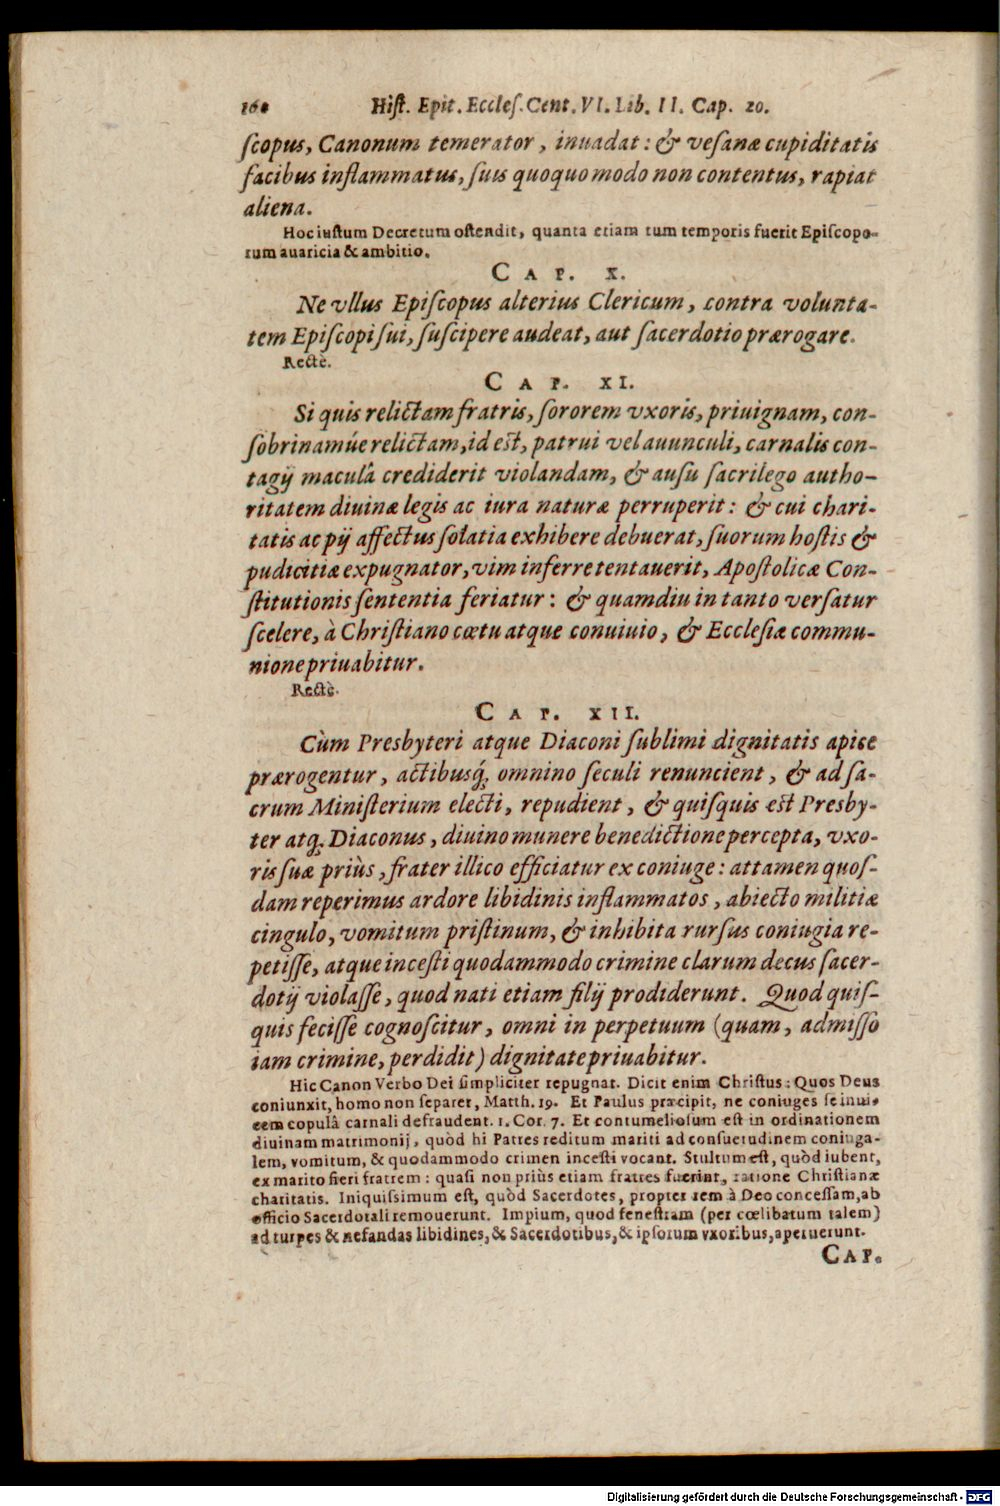 Hiſt. Epit. Eccleſ. Cent. VI. Lib. II. Cap. 20.
ſcopus, Canonum temerator, inuadat: & veſanæ cupiditatis
facibus inflammatus, ſuis quoquo modo non contentus, rapiat
aliena.
Hoc iuſtum Decretum oſtendit, quanta etiam tum temporis fuerit Epiſcopo-
rum auaricia & ambitio.
CAP. X.
Ne vllus Epiſcopus alterius Clericum, contra volunta-
tem Epiſcopi ſui, ſuſcipere audeat, aut ſacerdotio prærogare.
Rectè.
CAP. XI.
Si quis relictam fratris, ſororem vxoris, priuignam, con-
ſobrinamúe relictam, id eſt, patrui vel auunculi, carnalis con-
tagij maculâ crediderit violandam, & auſu ſacrilego autho-
ritatem diuinæ legis ac iura naturæ perruperit: & cui chari-
tatis ac pij affectus ſolatia exhibere debuerat, ſuorum hoſtis &
pudicitiæ expugnator, vim inferre tentauerit, Apoſtolicæ Con-
ſtitutionis ſententia feriatur: & quamdiu in tanto verſatur
ſcelere, à Chriſtiano cœtu atque conuiuio, & Eccleſiæ commu-
nione priuabitur.
Rectè.
CAP. XII.
Cùm Presbyteri atque Diaconi ſublimi dignitatis apice
prærogentur, actibusq́; omnino ſeculi renuncient, & ad ſa-
crum Miniſterium electi, repudient, & quiſquis eſt Presby-
ter atq; Diaconus, diuino munere benedictione percepta, vxo-
ris ſuæ priùs, frater illico efficiatur ex coniuge: attamen quoſ-
dam reperimus ardore libidinis inflammatos, abiecto militiæ
cingulo, vomitum priſtinum, & inhibita rurſus coniugia re-
petiſſe, atque inceſti quodammodo crimine clarum decus ſacer-
dotij violaſſe, quod nati etiam filij prodiderunt. Quod quiſ-
quis feciſſe cognoſcitur, omni in perpetuum (quam, admiſſo
iam crimine, perdidit) dignitate priuabitur.
Hic Canon Verbo Dei ſimpliciter repugnat. Dicit enim Chriſtus: Quos Deus
coniunxit, homo non ſeparet, Matth. 19. Et Paulus præcipit, ne coniuges ſe inui-
cem copulâ carnali defraudent. 1. Cor. 7. Et contumelioſum eſt in ordinationem
diuinam matrimonij, quòd hi Patres reditum mariti ad conſuetudinem coniuga-
lem, vomitum, & quodammodo crimen inceſti vocant. Stultum eſt, quòd iubent,
ex marito fieri fratrem: quaſi non priùs etiam fratres fuerint, ratione Chriſtianæ
charitatis. Iniquiſsimum eſt, quòd Sacerdotes, propter rem à Deo conceſſam, ab
officio Sacerdotali remouerunt. Impium, quod feneſtram (per cœlibatum talem)
ad turpes & nefandas libidines, & Sacerdotibus, & ipſorum vxoribus, aperuerunt.
CAP.
Digitalisierung gefördert durch die Deutsche Forschungsgemeinschaft - DFG